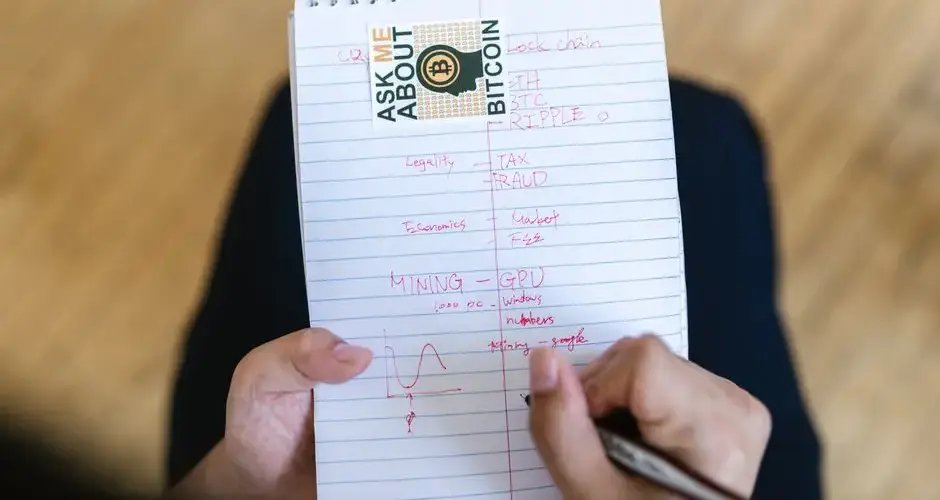 ASK ME
ABOUT
BITCOIN
Lock chain
TH
BTC
RIPPLE
Legality - TAX
FRAUD
Economics - Market
Fee
MINING - GPU
1000 pc - windows
numbers
Mining - google